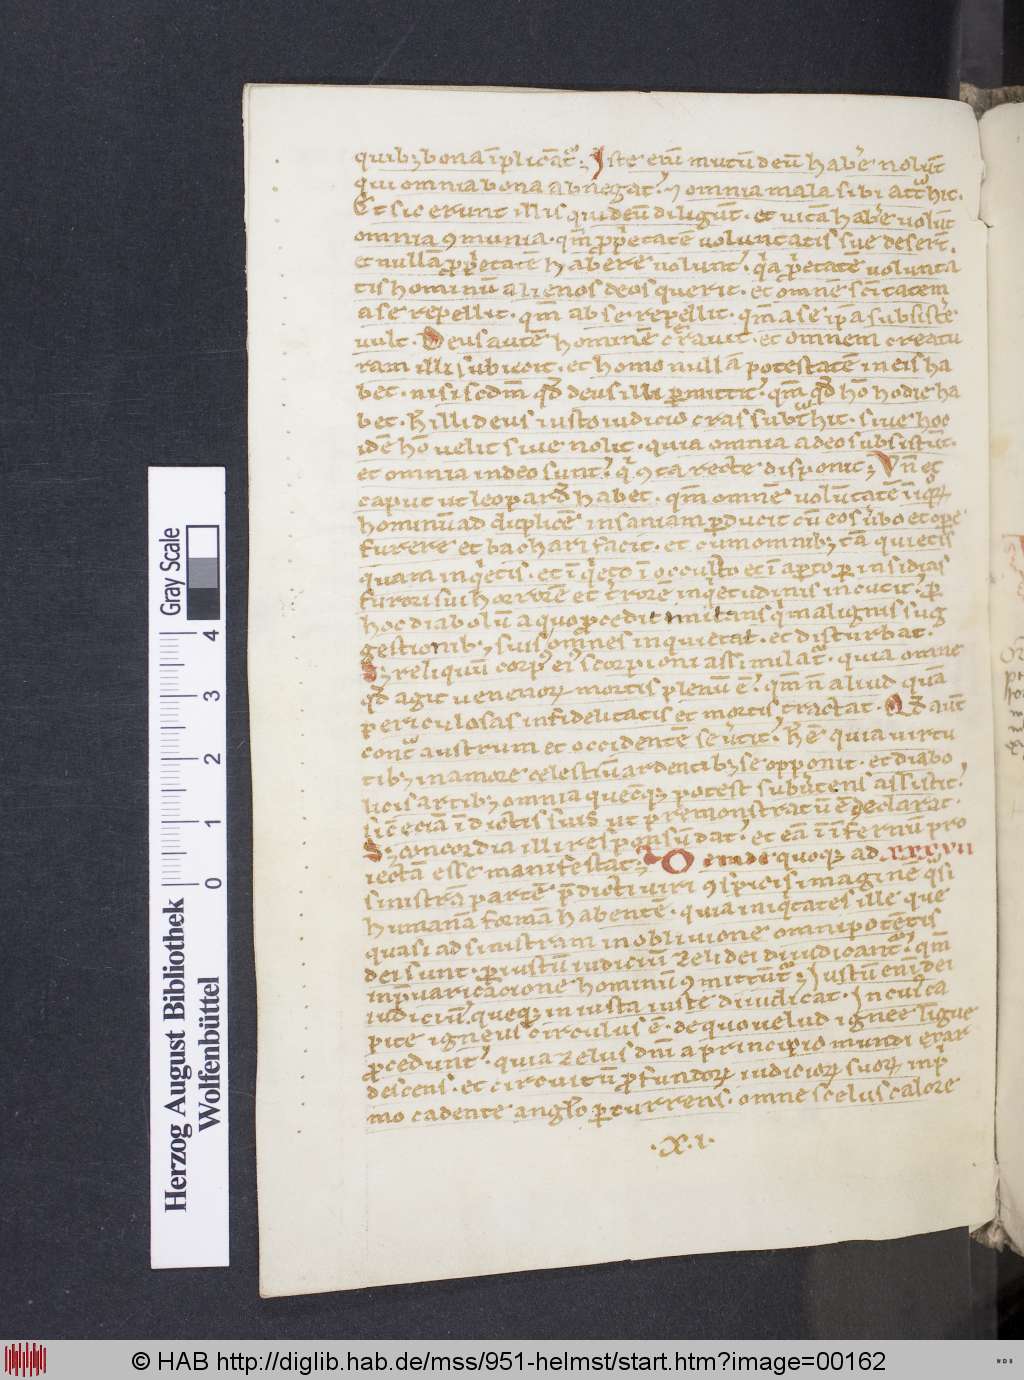 quibꝫ bona īplicāt᷑ ; Iste eni᷑ mutū deū hab᷑e nolu᷑t
qui omnia bona abnegat. ⁊ omnia mala sibi att͛hit.
Et sic erunt illis qui deū diligu᷑t. et uitā hab᷑e uolu᷑t
omnia ꝯmunia. qm̄ ꝓp᷑etatē uoluntatis sue deser᷑t.
et nullā ꝓp᷑etatē habere uolunt. q᷑a p᷑etatē uolunta
tis hominū alienos deos querit. et omnē scītatem
a se repellit. qm̄ ab se repellit. qm̄ a se ipā subsiste᷑
uult. Deus autē hominē creauit. et omnem creatu
ram illi subiecit. et homo nullā potestatē in eis ha
bet. nisi scdm̄ qd̄ deus illi ꝑmittit. qm̄ qd̄ ho᷑ hodie ha
bet. h᷑ illi deus iusto iudicio cras subt͛hit. siue hoc
idē ho᷑ uelit siue nolit. quia omnia a deo subsistu᷑t.
et omnia in deo sunt. q᷑ ꝯta recte disponit ; Vn̄ et
caput ut leopardꝰ habet. qm̄ omnē uolu᷑tatē
hominū ad duplicē insaniam ꝑducit cū eos u᷑bo et ope᷑
furere et bachari facit. et cum omnibꝫ tā quietis
quam inq᷑etis. et ī q᷑eto ī occulto et ī aperto ꝑ insidias
furoris sui horrorē et t᷑rorē inq᷑etudinis incutit. ꝑ
hoc diabolū a quo ꝓcedit imitans q᷑ malignis sug
gestionibꝫ suis omnes inquietat. et disturbat.
Sꝫ reliquū corpꝰ ei᷑ scorpioni assimilat᷑. quia omne
qd̄ agit uenenoꝝ mortis plenū e᷑. qm̄ n̄ aliud quā
periculosas infidelitatis et mortis tractat. Qd̄ aut᷑
cont͛ austrum et occidentē se u᷑tit. h᷑ e᷑ quia uirtu
tibꝫ in amore celestiū ardentibꝫ se opponit. et diabo
licis artibꝫ omnia quecqꝫ potest subu᷑tens assistit.
sic᷑ ecia᷑ ī dictis suis ut p᷑monstratū e᷑ declarat.
Sꝫ concordia illi responsū dat. et eā ī īfernū pro
iectā esse manifestat ; Deinde quoqꝫ ad XXXVII
sinistrā partē p᷑dicti uiri ꝯspicis imaginē q᷑si
humanā formā habentē. quia iniq᷑tates ille que
quasi ad sinistram in obliuione omnipotētis
dei sunt. ꝑ iustū iudiciū zeli dei diiudicant᷑. qm̄
in p᷑uaricacione hominū ꝯmittu᷑t᷑ ; Iustū eni᷑ dei
iudiciū queqꝫ iniusta iuste diiudicat. In cui᷑ ca
pite igneus circulus e᷑. de quo uelud ignee ligue
ꝓcedunt. quia zelus dn̄i a principio mundi exar
descens. et circuitū ꝓfundoꝝ iudicioꝝ suoꝝ in p᷑
mo cadente anglo ꝑcurrens. omne scelus calore
.X.I.
Gray Scale
0 1 2 3 4
Herzog August Bibliothek
Wolfenbüttel
© HAB http://diglib.hab.de/mss/951-helmst/start.htm?image=00162